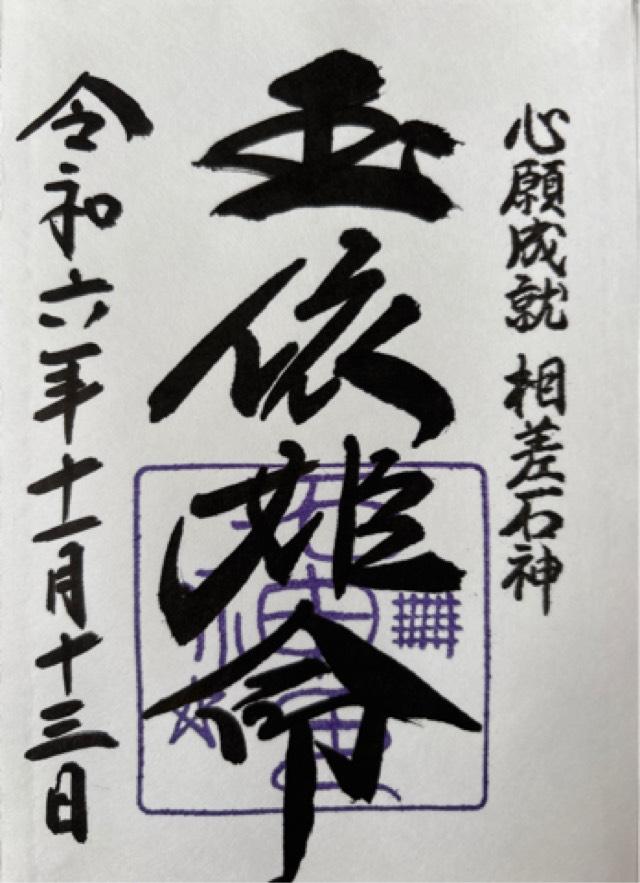 心願成就 相差石神
玉依姫命
令和六年十一月十三日